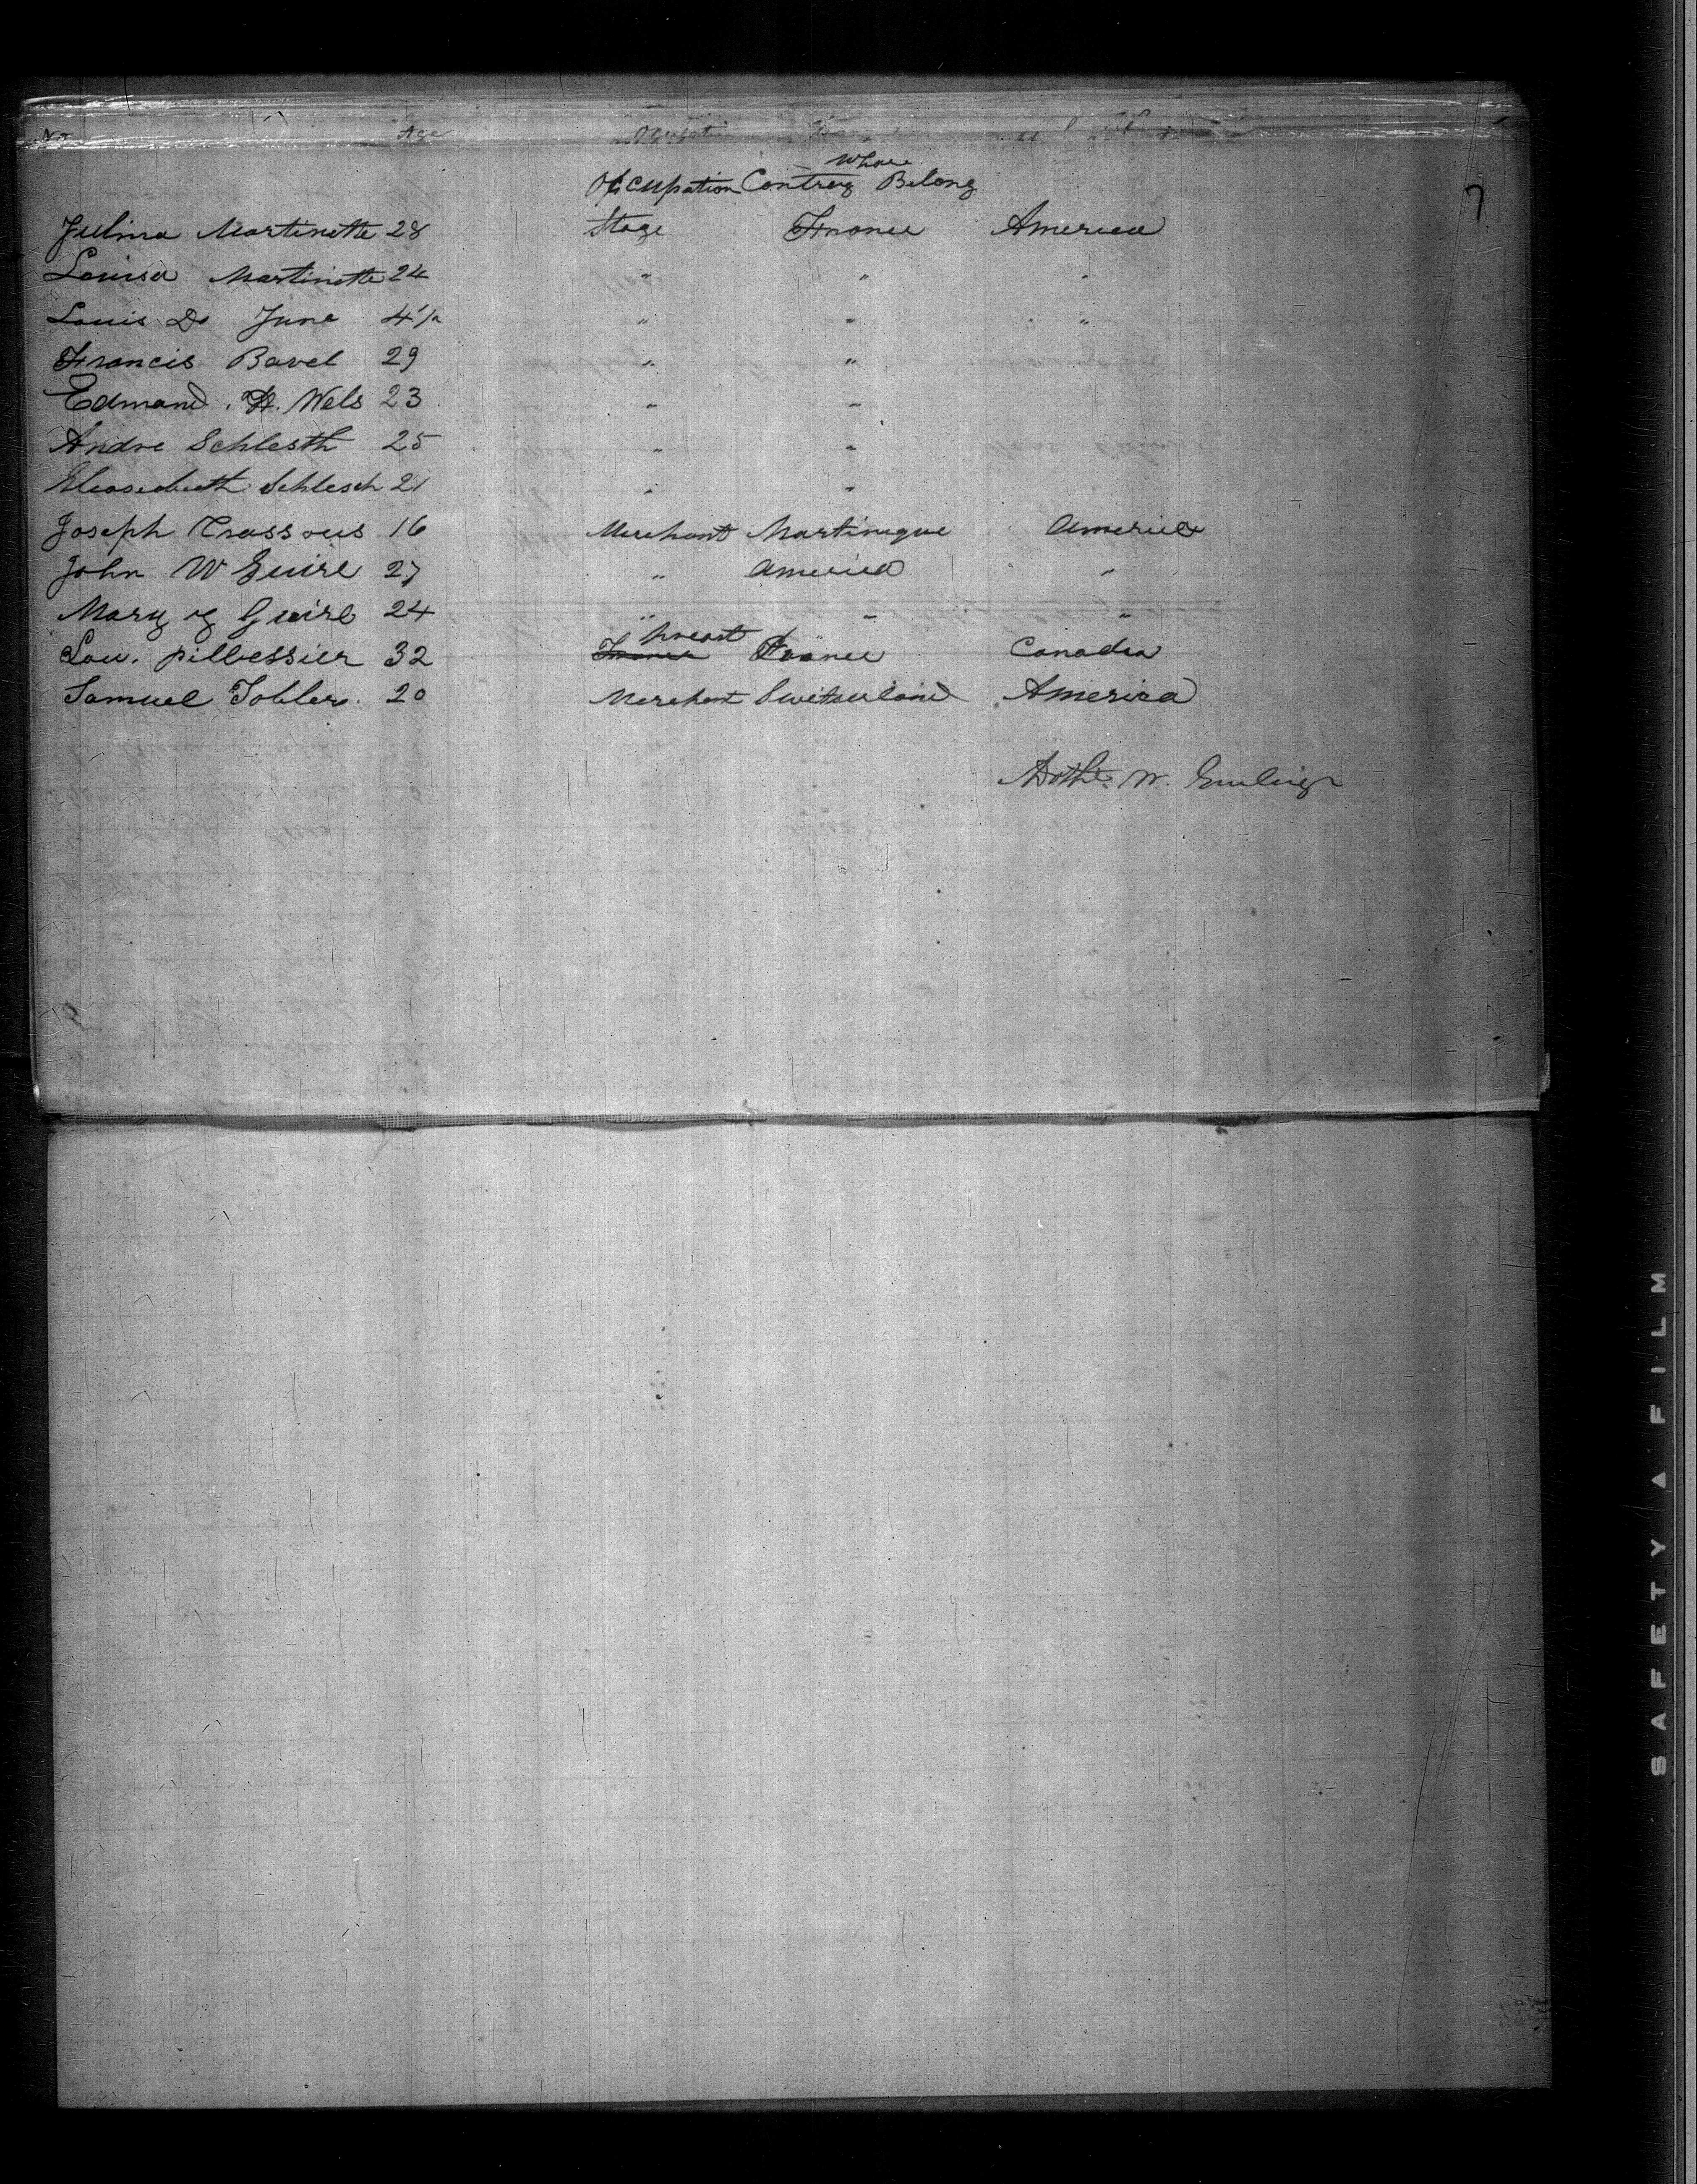 No Age Occupation
whare
Occupation Contrey Belong
7
Julma Martinette 28 Stage France America
Louisa Martinette 24 " " "
Louis De June 4 1/2 " " "
Francis Bavel 29 " "
Edmand . H. Wels 23 " "
Andre Schlesth 25 " "
Schlesch 21 " "
Joseph Crassous 16 Merchant Martinique America
John W Guire 27 " America "
Mary Guire 24 " " "
Lou. pillessier 32 France preast France Canada
Samuel Tobler. 20 Merchant Switzerland America
W.
SAFETY A FILM